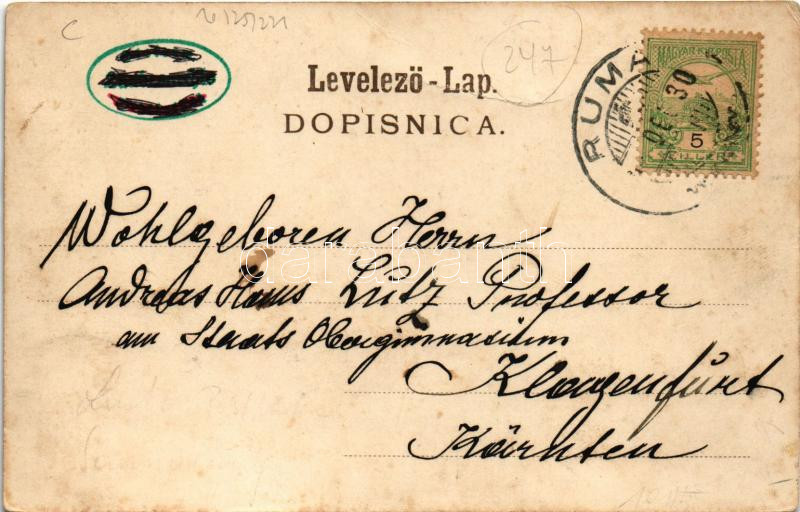 C
247
Levelező-Lap.
DOPISNICA.
MAGYAR KIR. POSTA
5
FILLÉR
RUMA
30
Wohlgeboren Herrn
Andreas Hans Lutz Professor
am Staats Obergimnasium
Klagenfurt
Kärnten
darabanth